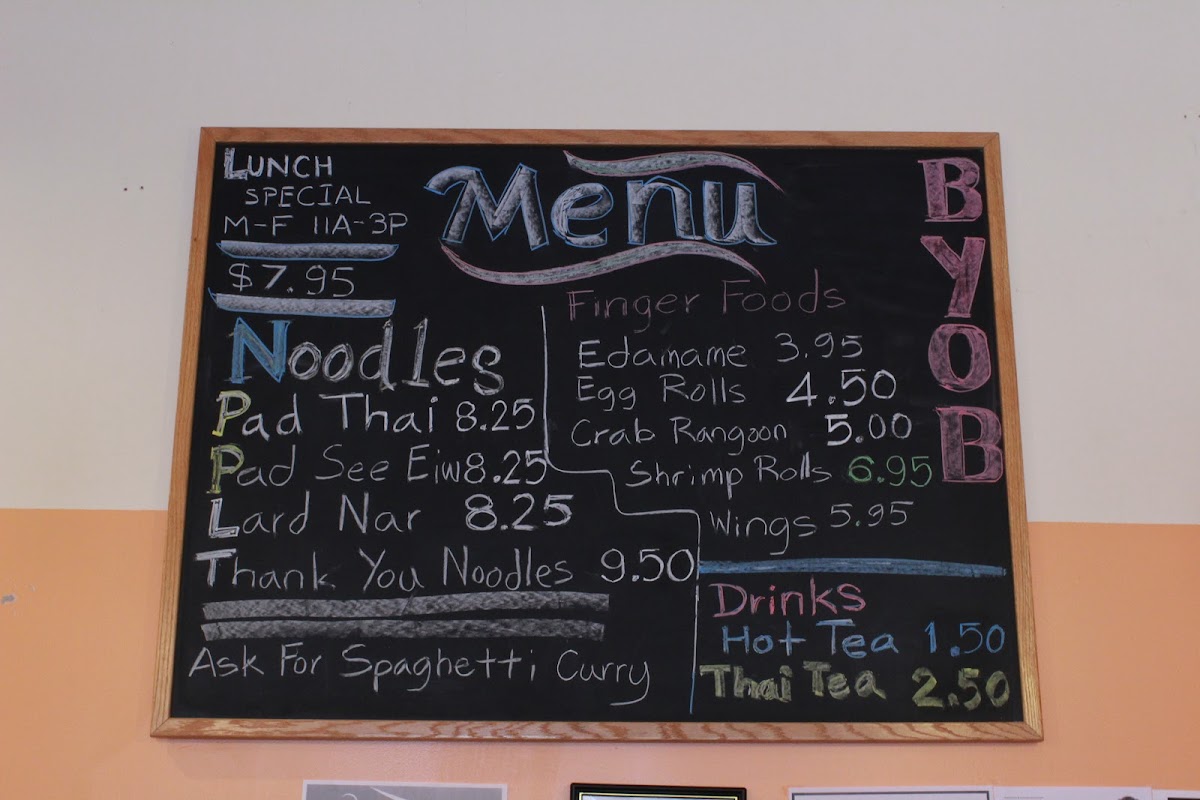 LUNCH
SPECIAL
M-F 11A-3P
$7.95
Menu
BYOB
Noodles
Pad Thai 8.25
Pad See Eiw 8.25
Lard Nar 8.25
Thank You Noodles 9.50
Ask For Spaghetti Curry
Finger Foods
Edamame 3.95
Egg Rolls 4.50
Crab Rangoon 5.00
Shrimp Rolls 6.95
Wings 5.95
Drinks
Hot Tea 1.50
Thai Tea 2.50